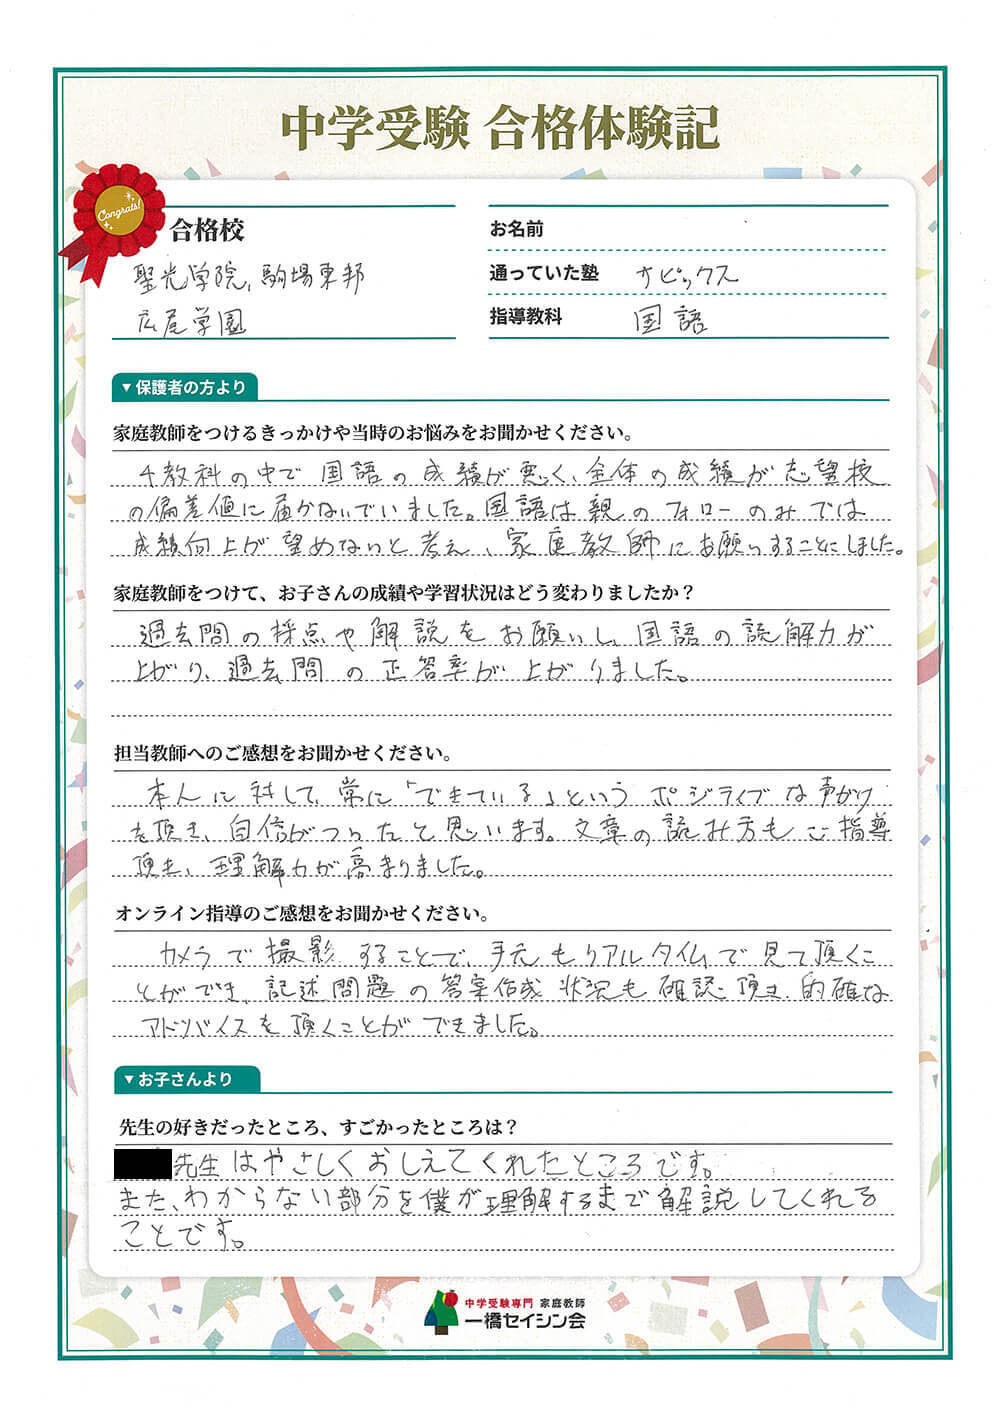 中学受験 合格体験記
Congrats!
合格校
聖光学院、駒場東邦
広尾学園
お名前
通っていた塾 サピックス
指導教科 国語
▼保護者の方より
家庭教師をつけるきっかけや当時のお悩みをお聞かせください。
4教科の中で国語の成績が悪く、全体の成績が志望校
の偏差値に届かないでいました。国語は親のフォローのみでは
成績向上が望めないと考え、家庭教師にお願いすることにしました。
家庭教師をつけて、お子さんの成績や学習状況はどう変わりましたか？
過去問の採点や解説をお願いし、国語の読解力が
上がり、過去問の正答率が上がりました。
担当教師へのご感想をお聞かせください。
本人に対して、常に「できている」というポジティブな声がけ
を頂き、自信がついたと思います。文章の読み方もご指導
頂き、理解力が高まりました。
オンライン指導のご感想をお聞かせください。
カメラで撮影することで、手元もリアルタイムで見て頂くこ
とができ、記述問題の答案作成状況も確認頂き、的確な
アドバイスを頂くことができました。
▼お子さんより
先生の好きだったところ、すごかったところは？
先生はやさしくおしえてくれたところです。
また、わからない部分を僕が理解するまで解説してくれる
ことです。
中学受験専門 家庭教師
一橋セイシン会